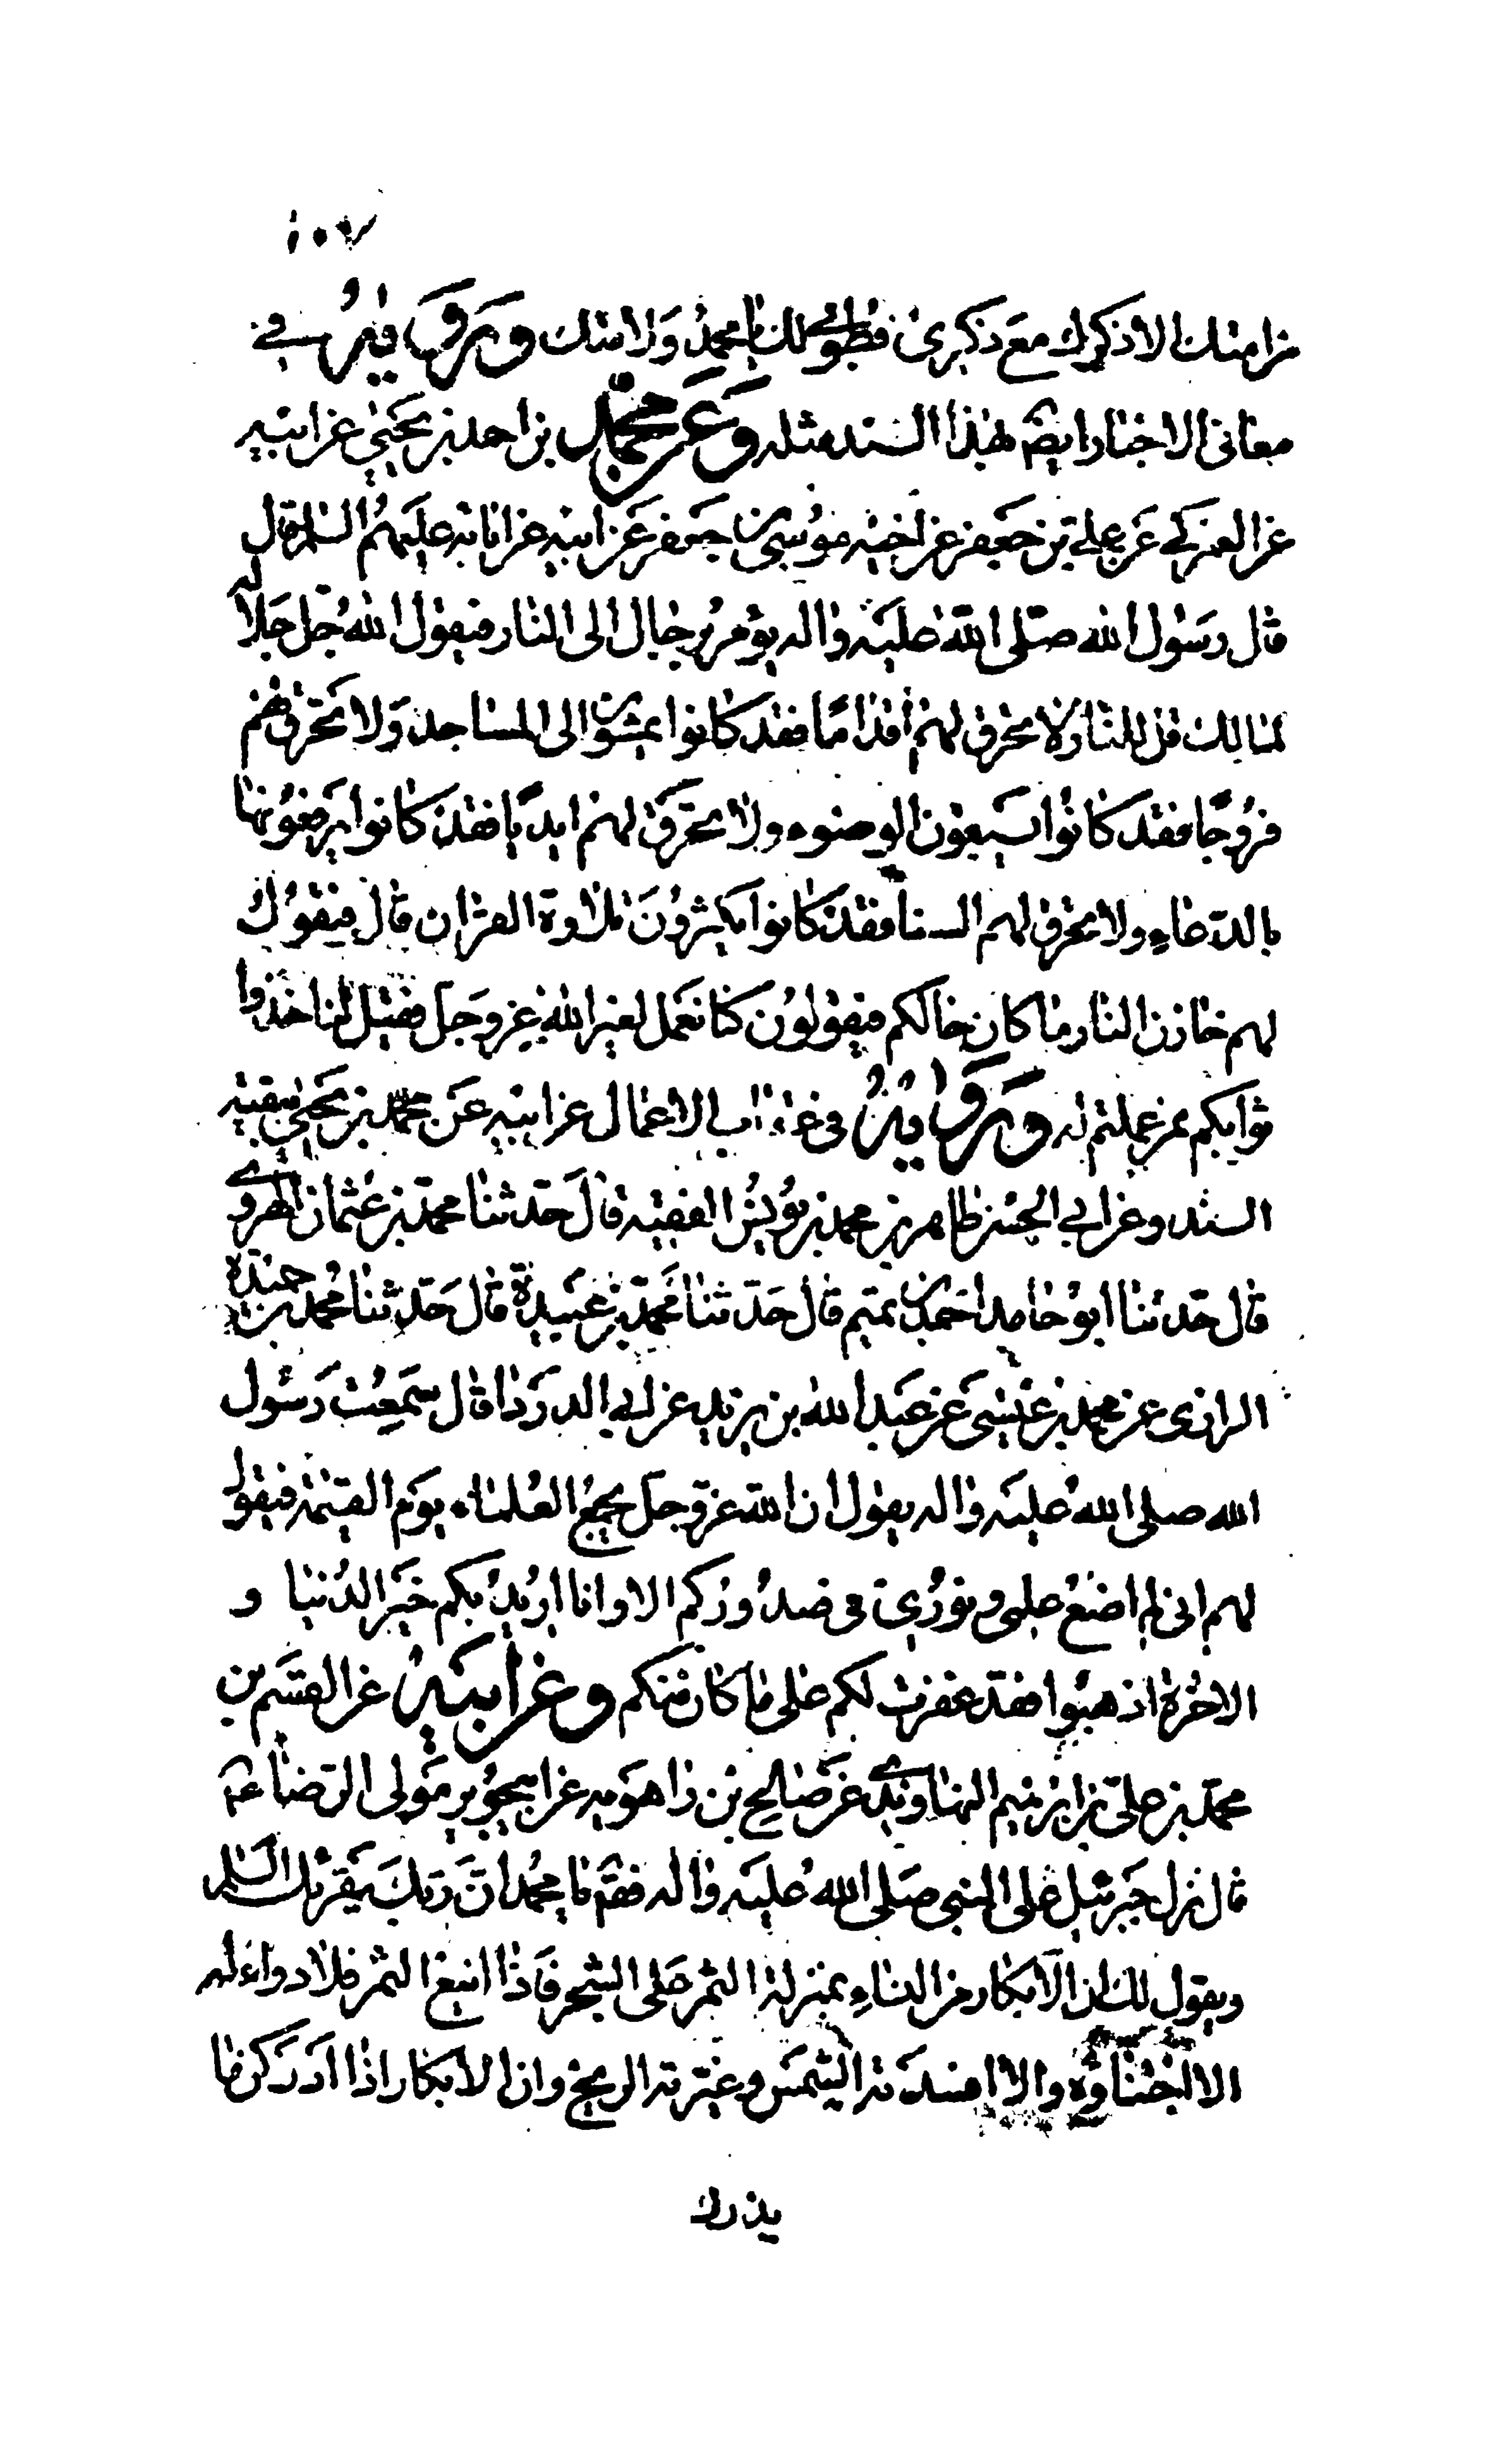 ١٠٧
من امتك الا ذكرك مع ذكرى فطوبى لك يا محمد ولامتك ورواية في
معانى الاخبار ايضا بهذا السند مثله وعن محمد بن احمد بن يحيى عن ابيه
عن العمركي عن علي بن جعفر عن اخيه موسى بن جعفر عن ابيه عن ابائه عليهم السلم قال
قال رسول الله صلى الله عليه واله يؤمر برجال الى النار فيقول الله جل جلاله
لمالك قل للنار لا تحرقى لهم اقداما فقد كانوا يمشون الى المساجد ولا تحرقى لهم
فروجا فقد كانوا يسبغون الوضوء ولا تحرقى لهم ايديا فقد كانوا يرفعونها
بالدعاء ولا تحرقى لهم السنا فقد كانوا يكثرون تلاوة القران قال فيقول
لهم خازن النار ما كان حالكم فيقولون كنا نعمل لغير الله عز وجل فقيل لنا خذوا
ثوابكم ممن عملتم له ورواية فى عقاب الاعمال عن ابيه عن محمد بن يحيى ببقية
السند وعن ابي الحسن طاهر بن محمد بن يونس الفقيه قال حدثنا محمد بن عثمان الهروي
قال حدثنا ابو حامد احمد بن تميم قال حدثنا محمد بن عبيدة قال حدثنا محمد بن حميدة
الرازى عن محمد بن عيسى عن عبد الله بن يزيد عن ابي الدرداء قال سمعت رسول
الله صلى الله عليه واله يقول ان الله عز وجل يجمع العلماء يوم القيمة فيقول
لهم انى لم اضع علمى و نورى فى صدوركم الا وانا اريد بكم خير الدنيا و
الاخرة اذهبوا فقد غفرت لكم على ما كان منكم وعن ابيه عن القسم بن
محمد بن على بن ابرهيم النهاوندي عن صالح بن راهويه عن ابيجويبر مولى الرضا ع
قال نزل جبرئيل على النبى صلى الله عليه واله فقال يا محمد ان ربك يقرئك السلم
ويقول لك ان الابكار من النساء بمنزلة الثمر على الشجر فاذا اينع الثمر فلا دواء له
الا اجتناؤه والا افسدته الشمس وغيرته الريح وان الابكار اذا ادركن ما
يدرك